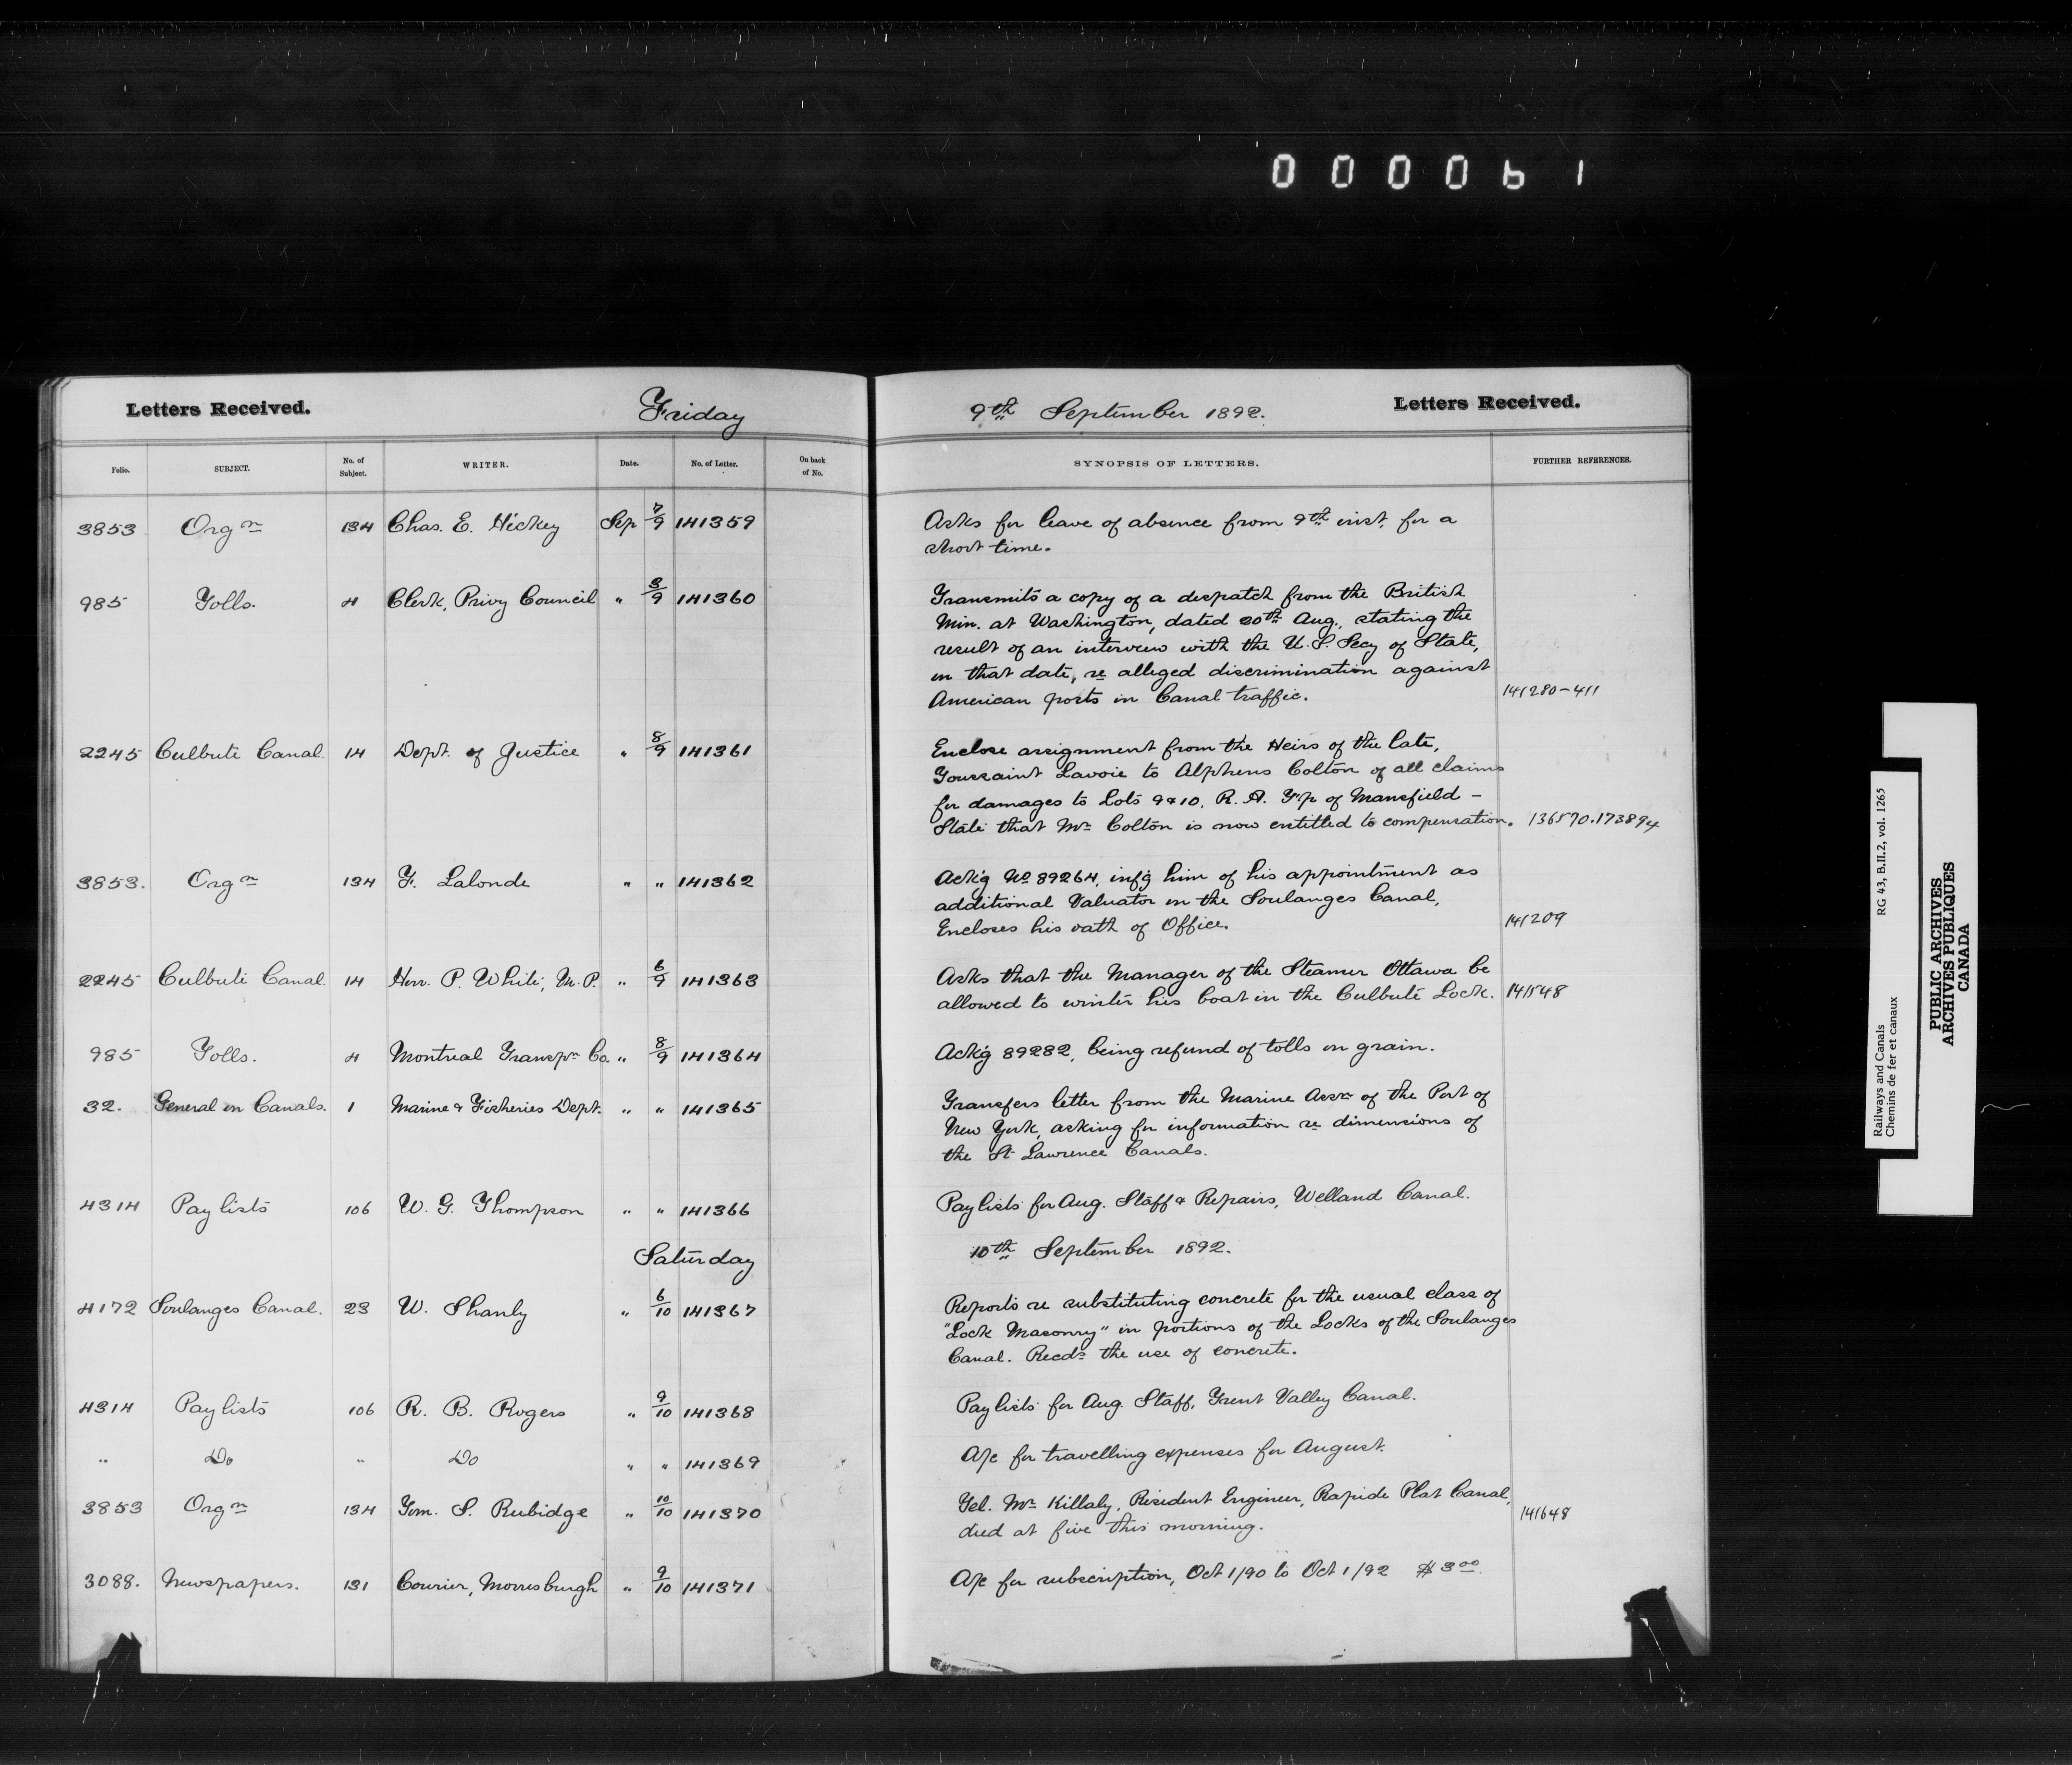 0 0 0 0 6 1
Letters Received. Friday 9th September 1892. Letters Received.
Folio. SUBJECT. No. of Subject. WRITER. Date. No. of Letter. On back of No. SYNOPSIS OF LETTERS. FURTHER REFERENCES.
3853 Orgn 134 Chas. E. Hickey Sep 7/9 141359 Asks for leave of absence from 9th inst, for a
short time.
985 Tolls. 4 Clerk, Privy Council " 3/9 141360 Transmits a copy of a despatch from the British
Min. at Washington, dated 20th Aug., stating the
result of an interview with the U.S. Secy of State,
on that date, re alleged discrimination against
American ports in Canal traffic. 141280-411
2245 Culbute Canal. 14 Dept. of Justice " 8/9 141361 Enclose assignment from the Heirs of the late,
Toussaint Lavoie to Alpheus Colton of all claims
for damages to Lots 9 & 10, R. A. T'p of Mansfield -
State that Mr Colton is now entitled to compensation. 136570.173894
3853. Orgn 134 F. Lalonde " " 141362 Ack'g No 89264, inf'g him of his appointment as
additional Valuator on the Soulanges Canal,
Encloses his oath of Office. 141209
2245 Culbute Canal. 14 Hon. P. White, M.P. " 6/9 141363 Asks that the Manager of the Steamer Ottawa be
allowed to winter his boat in the Culbute Lock. 141548
985 Tolls. 4 Montreal Transpn Co. " 8/9 141364 Ack'g 89282, being refund of tolls on grain.
32. General on Canals. 1 Marine & Fisheries Dept. " " 141365 Transfers letter from the Marine Assn of the Port of
New York, asking for information re dimensions of
the St Lawrence Canals.
4314 Pay lists 106 W. G. Thompson " " 141366 Pay lists for Aug. Staff & Repairs, Welland Canal.
Saturday 10th September 1892.
4172 Soulanges Canal. 23 W. Shanly " 6/10 141367 Reports re substituting concrete for the usual class of
"Lock Masonry" in portions of the Locks of the Soulanges
Canal. Recds the use of concrete.
4314 Pay lists 106 R. B. Rogers " 9/10 141368 Pay lists for Aug. Staff, Trent Valley Canal.
" Do " Do " " 141369 A/c for travelling expenses for August.
3853 Orgn 134 Tom. S. Rubidge " 10/10 141370 Tel. Mr Killaly, Resident Engineer, Rapide Plat Canal,
died at five this morning. 141648
3088. Newspapers. 131 Courier, Morrisburgh " 9/10 141371 A/c for subscription, Oct 1/90 to Oct 1/92 $3.00
Railways and Canals RG 43, B.II.2, vol. 1265
Chemins de fer et canaux
PUBLIC ARCHIVES
ARCHIVES PUBLIQUES
CANADA